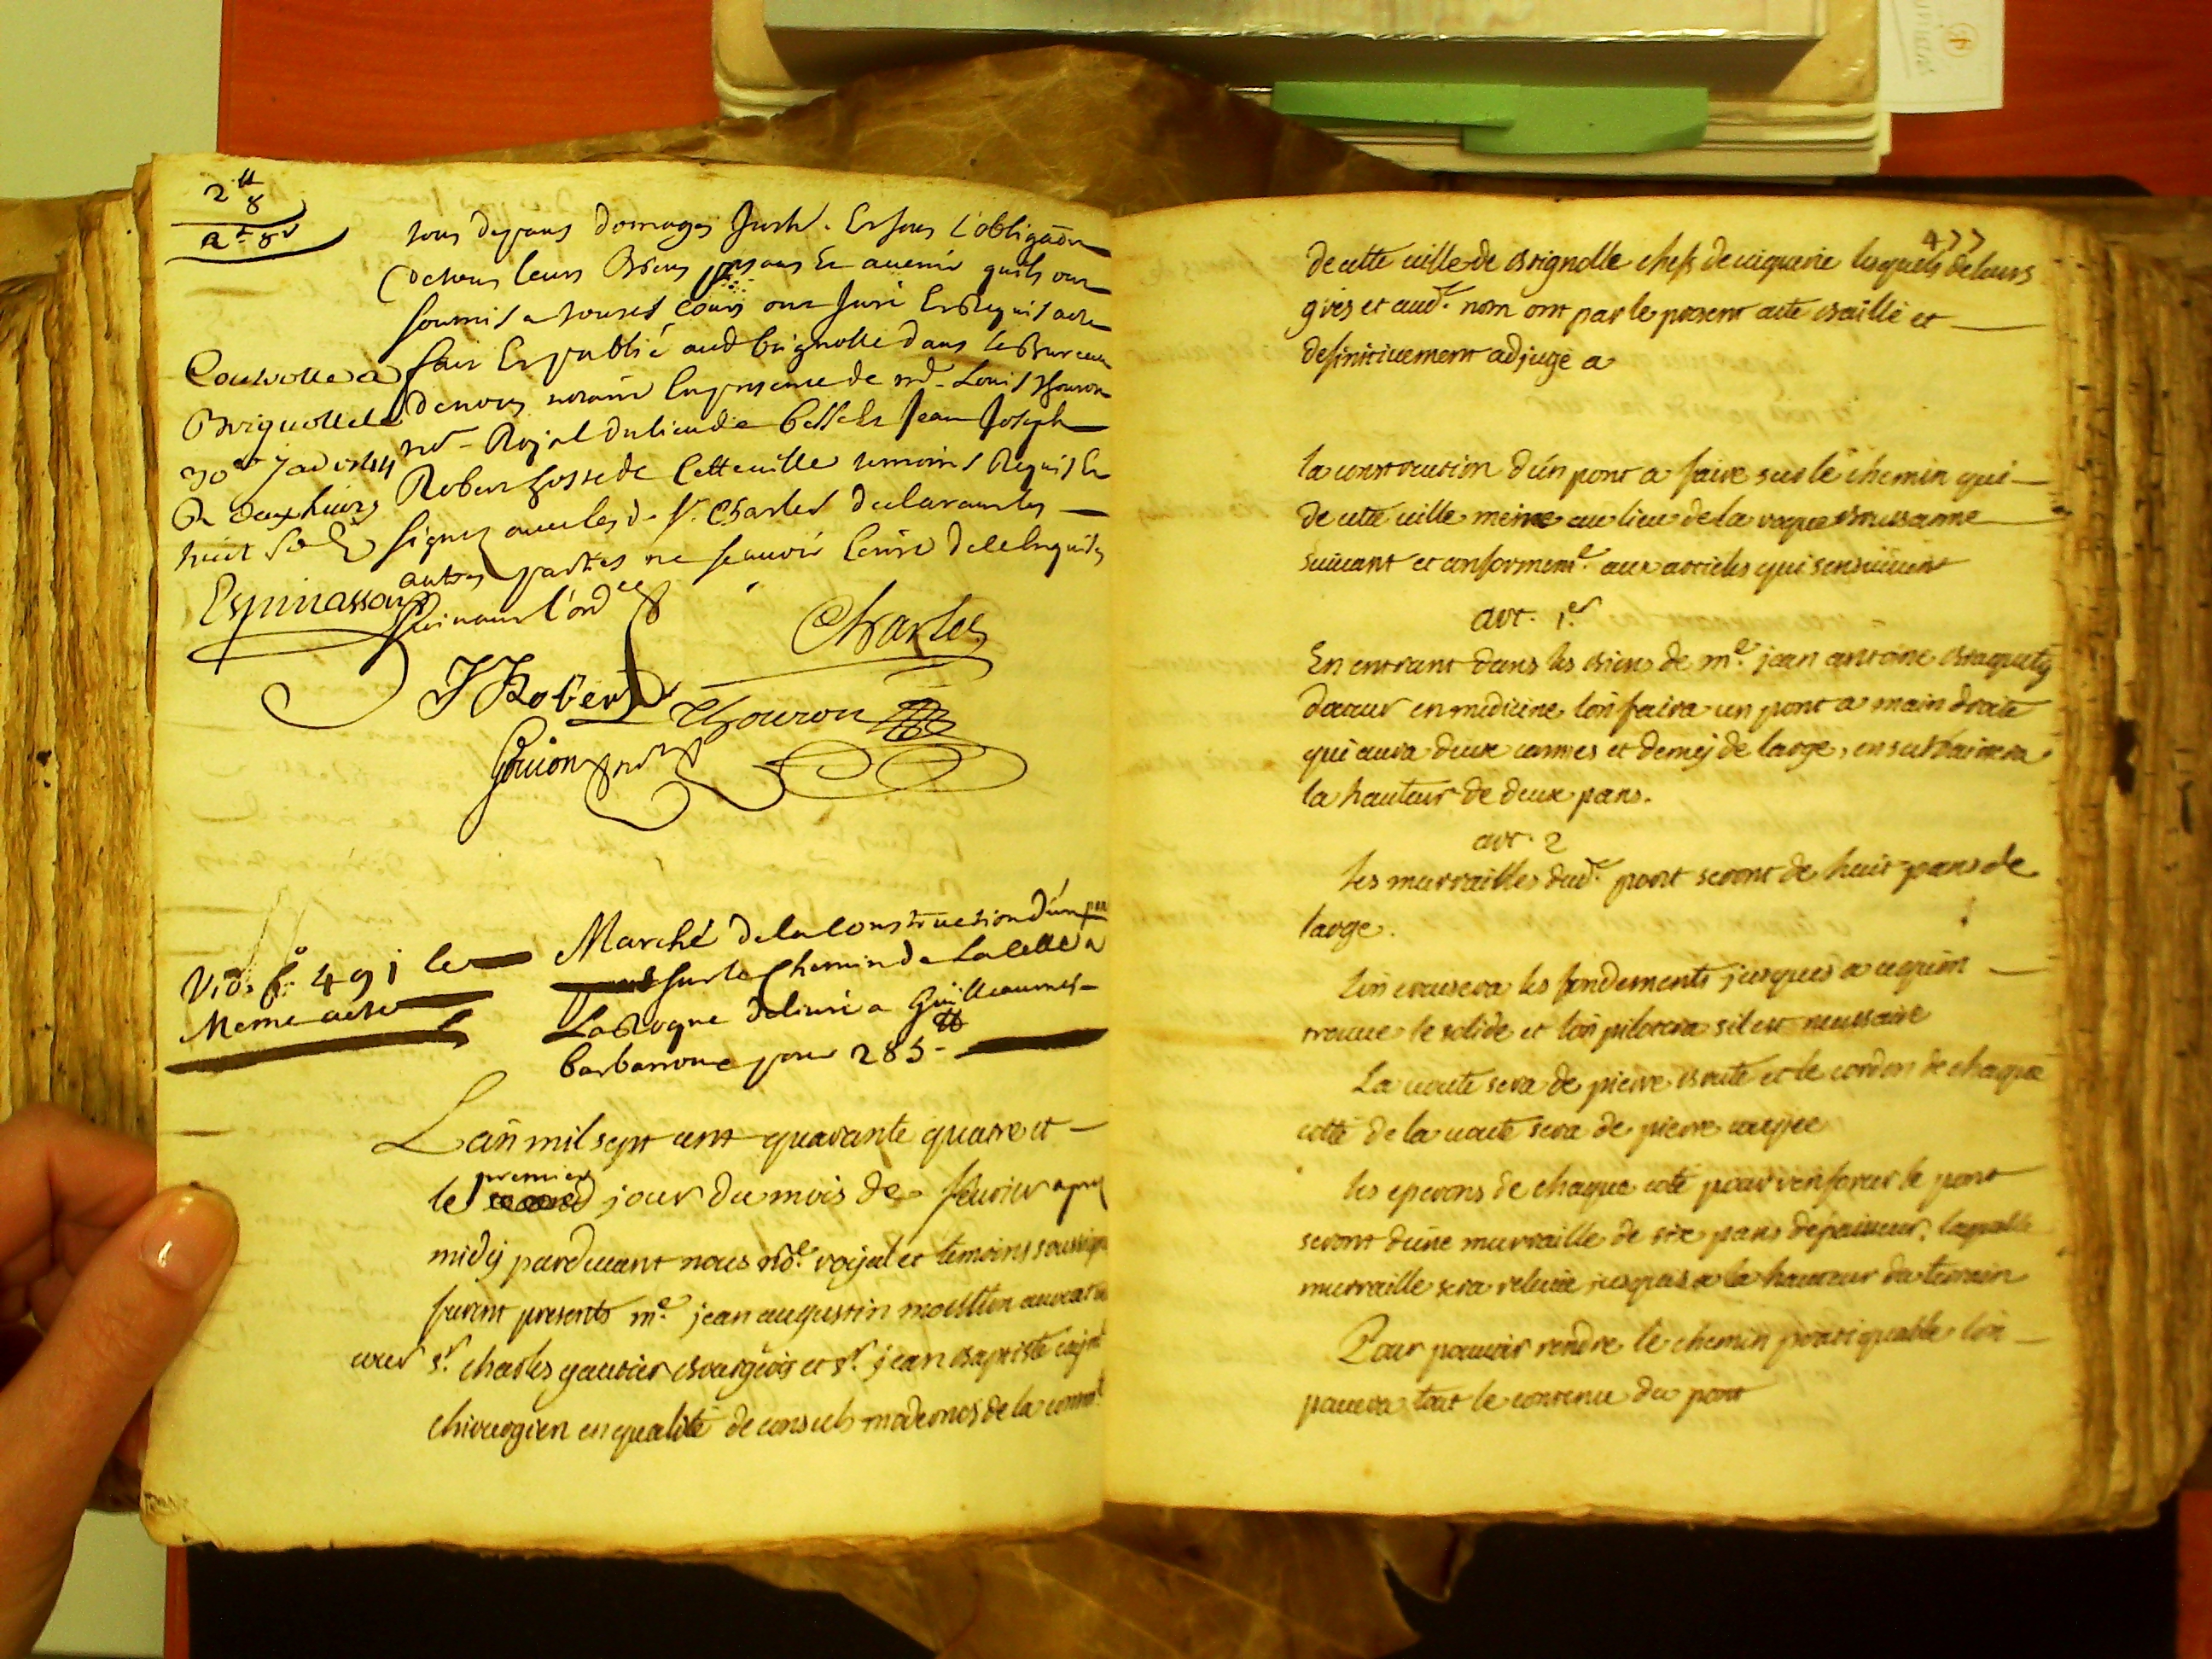 2tt 8
a 8
tous depans domages Jnth. Et sous L'obligaõn
de tous leurs Biens pnts Et avenir quils ont
soumis a toutes Cours ont Juré Et Requis acte
fait Et publié aud brignolle dans le Bureau
de nous notaire En presence de Me Louis Thouron
Royal du lieu de besse Et Jean Joseph
Robert de Cette ville temoins Requis Et
signés avec led. Sr. Charles declarant les
autres parties ne scavoir Ecrire de ce Enquises
suivant l'ordce
Controlle a
Brignolle le
30e 1744
R. deux livres
huit sols
Espinassy
Charles
J Robert
Thouron
Goujon nore
Vid. fo. 491 le
Meme acte
Marché de la Construction d'un pont
sur le Chemin de La Celle a
La Roque delivré a Guilleaume
barbarroux pour 285tt
L'añ mil sept cent quarante quatre et
le premier jour du mois de fevrier apres
midy pardevant nous noe. royal et temoins soussignes
furent presents me. jean augustin avocat en
cour sr. charles gautier bourgeois et sr. jean baptiste
chirurgien en qualité de consuls modernes de la commté
477
de cette ville de brignolle chefs de viguerie lesquels de leurs
grés et aud. nom ont par le present acte baillé et
definitivement adjugé a
la construction d'un pont a faire sur le chemin qui
de cette ville meine au lieu de la roque broussanne
suivant et conformemt. aux articles qui sensuivent
art. 1er
En entrant dans les biens de me. jean antoine braquety
docteur en medicine l'on faira un pont a main droite
qui aura deux cannes et demy de large, en
la hauteur de deux pans.
art. 2
les murrailles dud. pont seront de huit pans de
large.
L'on creusera les fondements jusques a ce quon
treuve le solide et l'on pilotera sil est necessaire
La voute sera de pierre brute et le cordon de chaque
cotté de la voute sera de pierre couppée
les eperons de chaque coté pour renforcer le pont
seront d'une murraille de six pans depaisseur, laquelle
murraille sera relevée jusques a la hauteur du terrain
Pour pouvoir rendre le chemin pratiquable l'on
pavera tout le contenu du pont